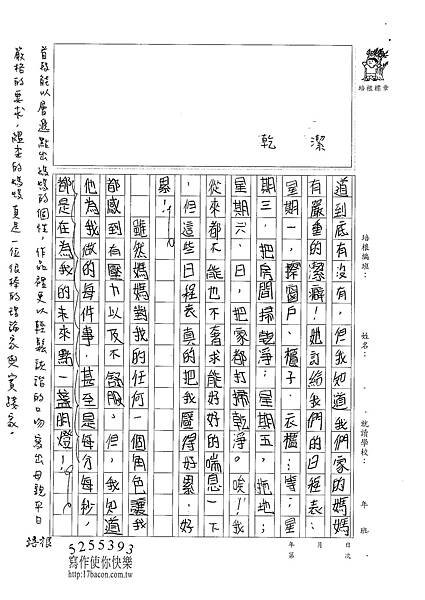 培根標章
培根編班：　姓名：　就讀學校：　年　班
年　月　日
第　次
道到底有沒有，但我知道我們家的媽媽
有嚴重的潔癖！她訂給我們的日程表：
星期一，擦窗戶、櫃子、衣櫃…等；星
期三，把房間掃乾淨；星期五，拖地；
星期六、日，把家都打掃乾淨。唉！我
從來都不能也不奢求能好好的喘息一下
，但這些日程表真的把我壓得好累、好
累！
雖然媽媽對我的任何一個角色讓我
都感到有壓力以及不舒服。但，我知道
他為我做的每件事，甚至是每分每秒，
都是在為我的未來點一盞明燈！
潔
乾
首段能以層遞點出媽媽的個性，作品裡更以輕鬆詼諧的口吻寫出母親平日
嚴格的要求，體查的媽媽真是一位很棒的理論家與實踐家。
培根
5255393
寫作使你快樂
http://17bacon.com.tw